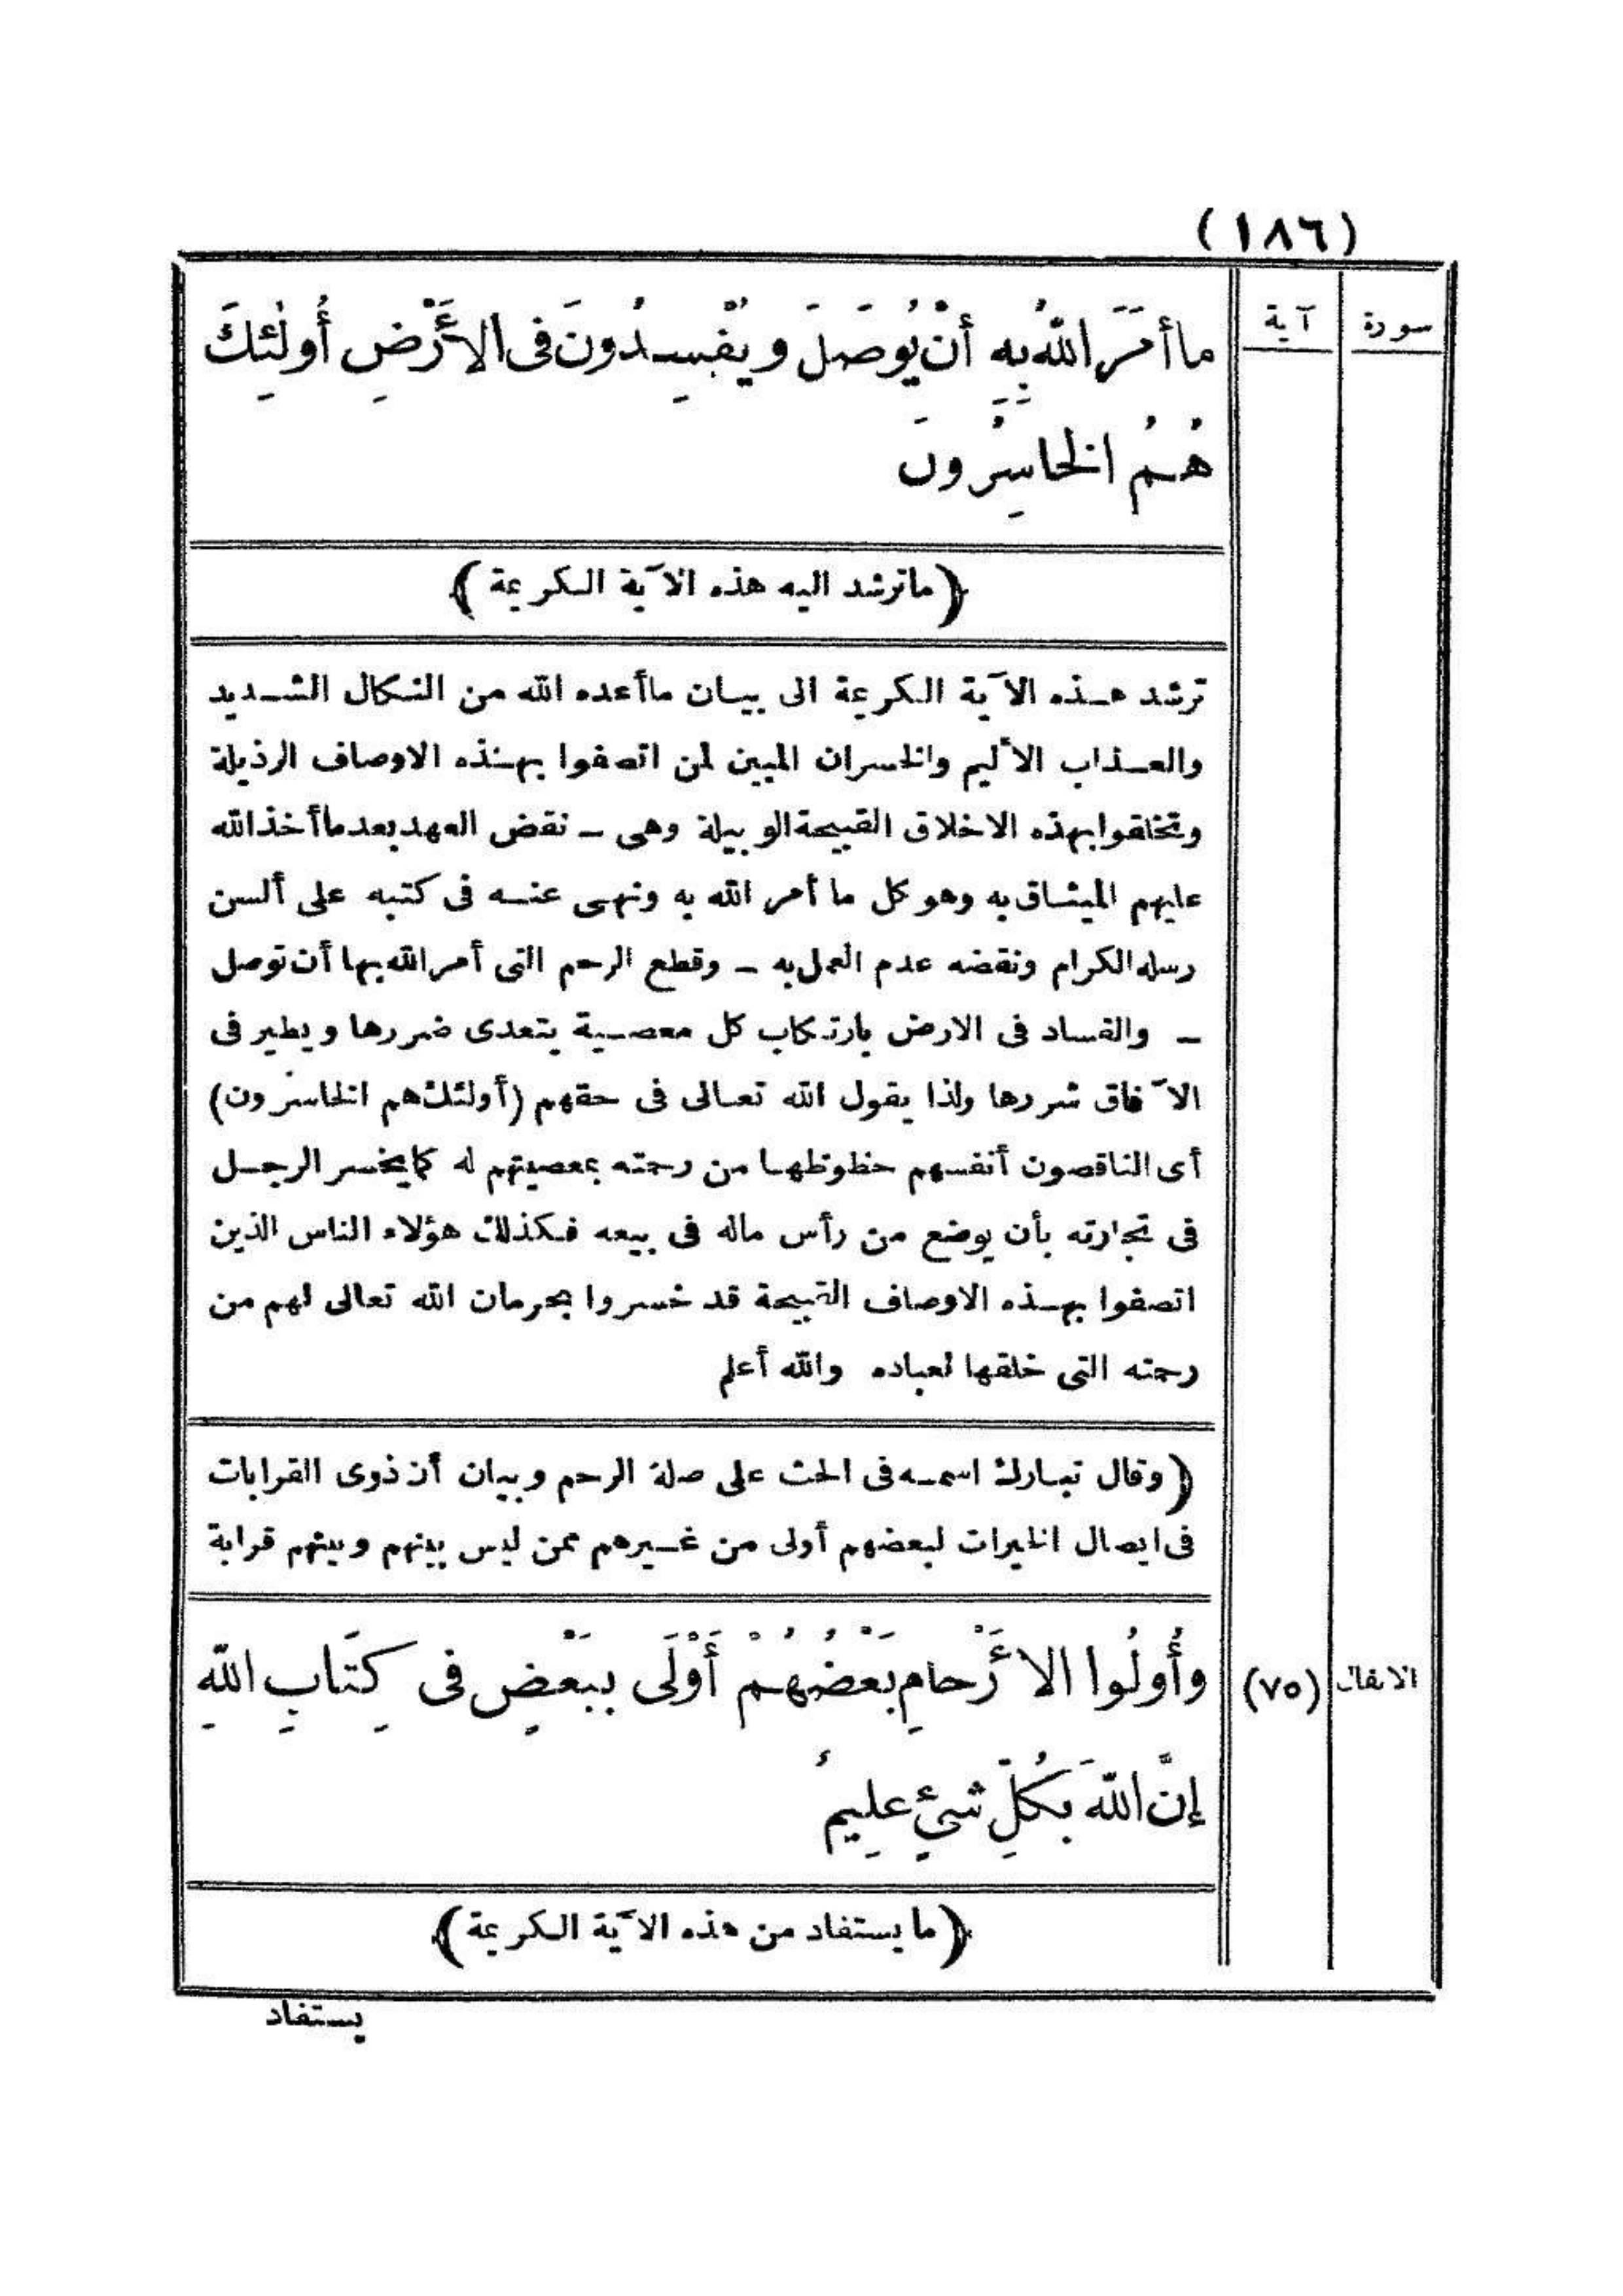 (١٨٦)
سورة
آية
ما أَمَرَ اللّٰهُ بِهِ أَنْ يُوصَلَ ويُفْسِدُونَ فى الأَرْضِ أُولٰئِكَ
هُمُ الخاسِرُونَ
(ماترشد اليه هذه الآية الكريمة)
ترشد هذه الآية الكريمة الى بيان ماأعده الله من النكال الشديد
والعذاب الأليم والخسران المبين لمن اتصفوا بهذه الاوصاف الرذيلة
وتخلقوا بهذه الاخلاق القبيحة الوبيلة وهى – نقض العهد بعد ماأخذ الله
عليهم الميثاق به وهو كل ما أمر الله به ونهى عنه فى كتبه على ألسن
رسله الكرام ونقضه عدم العمل به – وقطع الرحم التى أمر الله بها أن توصل
– والفساد فى الارض بارتكاب كل معصية يتعدى ضررها ويطير فى
الآفاق شررها ولذا يقول الله تعالى فى حقهم (أولئك هم الخاسرون)
أى الناقصون أنفسهم حظوظها من رحمته بمعصيتهم له كما يخسر الرجل
فى تجارته بأن يوضع من رأس ماله فى بيعه فكذلك هؤلاء الناس الذين
اتصفوا بهذه الاوصاف القبيحة قد خسروا بحرمان الله تعالى لهم من
رحمته التى خلقها لعباده والله أعلم
(وقال تبارك اسمه فى الحث على صلة الرحم وبيان أن ذوى القرابات
فى ايصال الخيرات لبعضهم أولى من غيرهم ممن ليس بينهم وبينهم قرابة
الانفال
(٧٥)
وأُولُوا الأَرْحامِ بَعْضُهُمْ أَوْلَى بِبَعْضٍ فى كِتَابِ اللّٰهِ
إنَّ اللّٰهَ بِكُلِّ شيْءٍ عِليمٌ
(ما يستفاد من هذه الآية الكريمة)
يستفاد